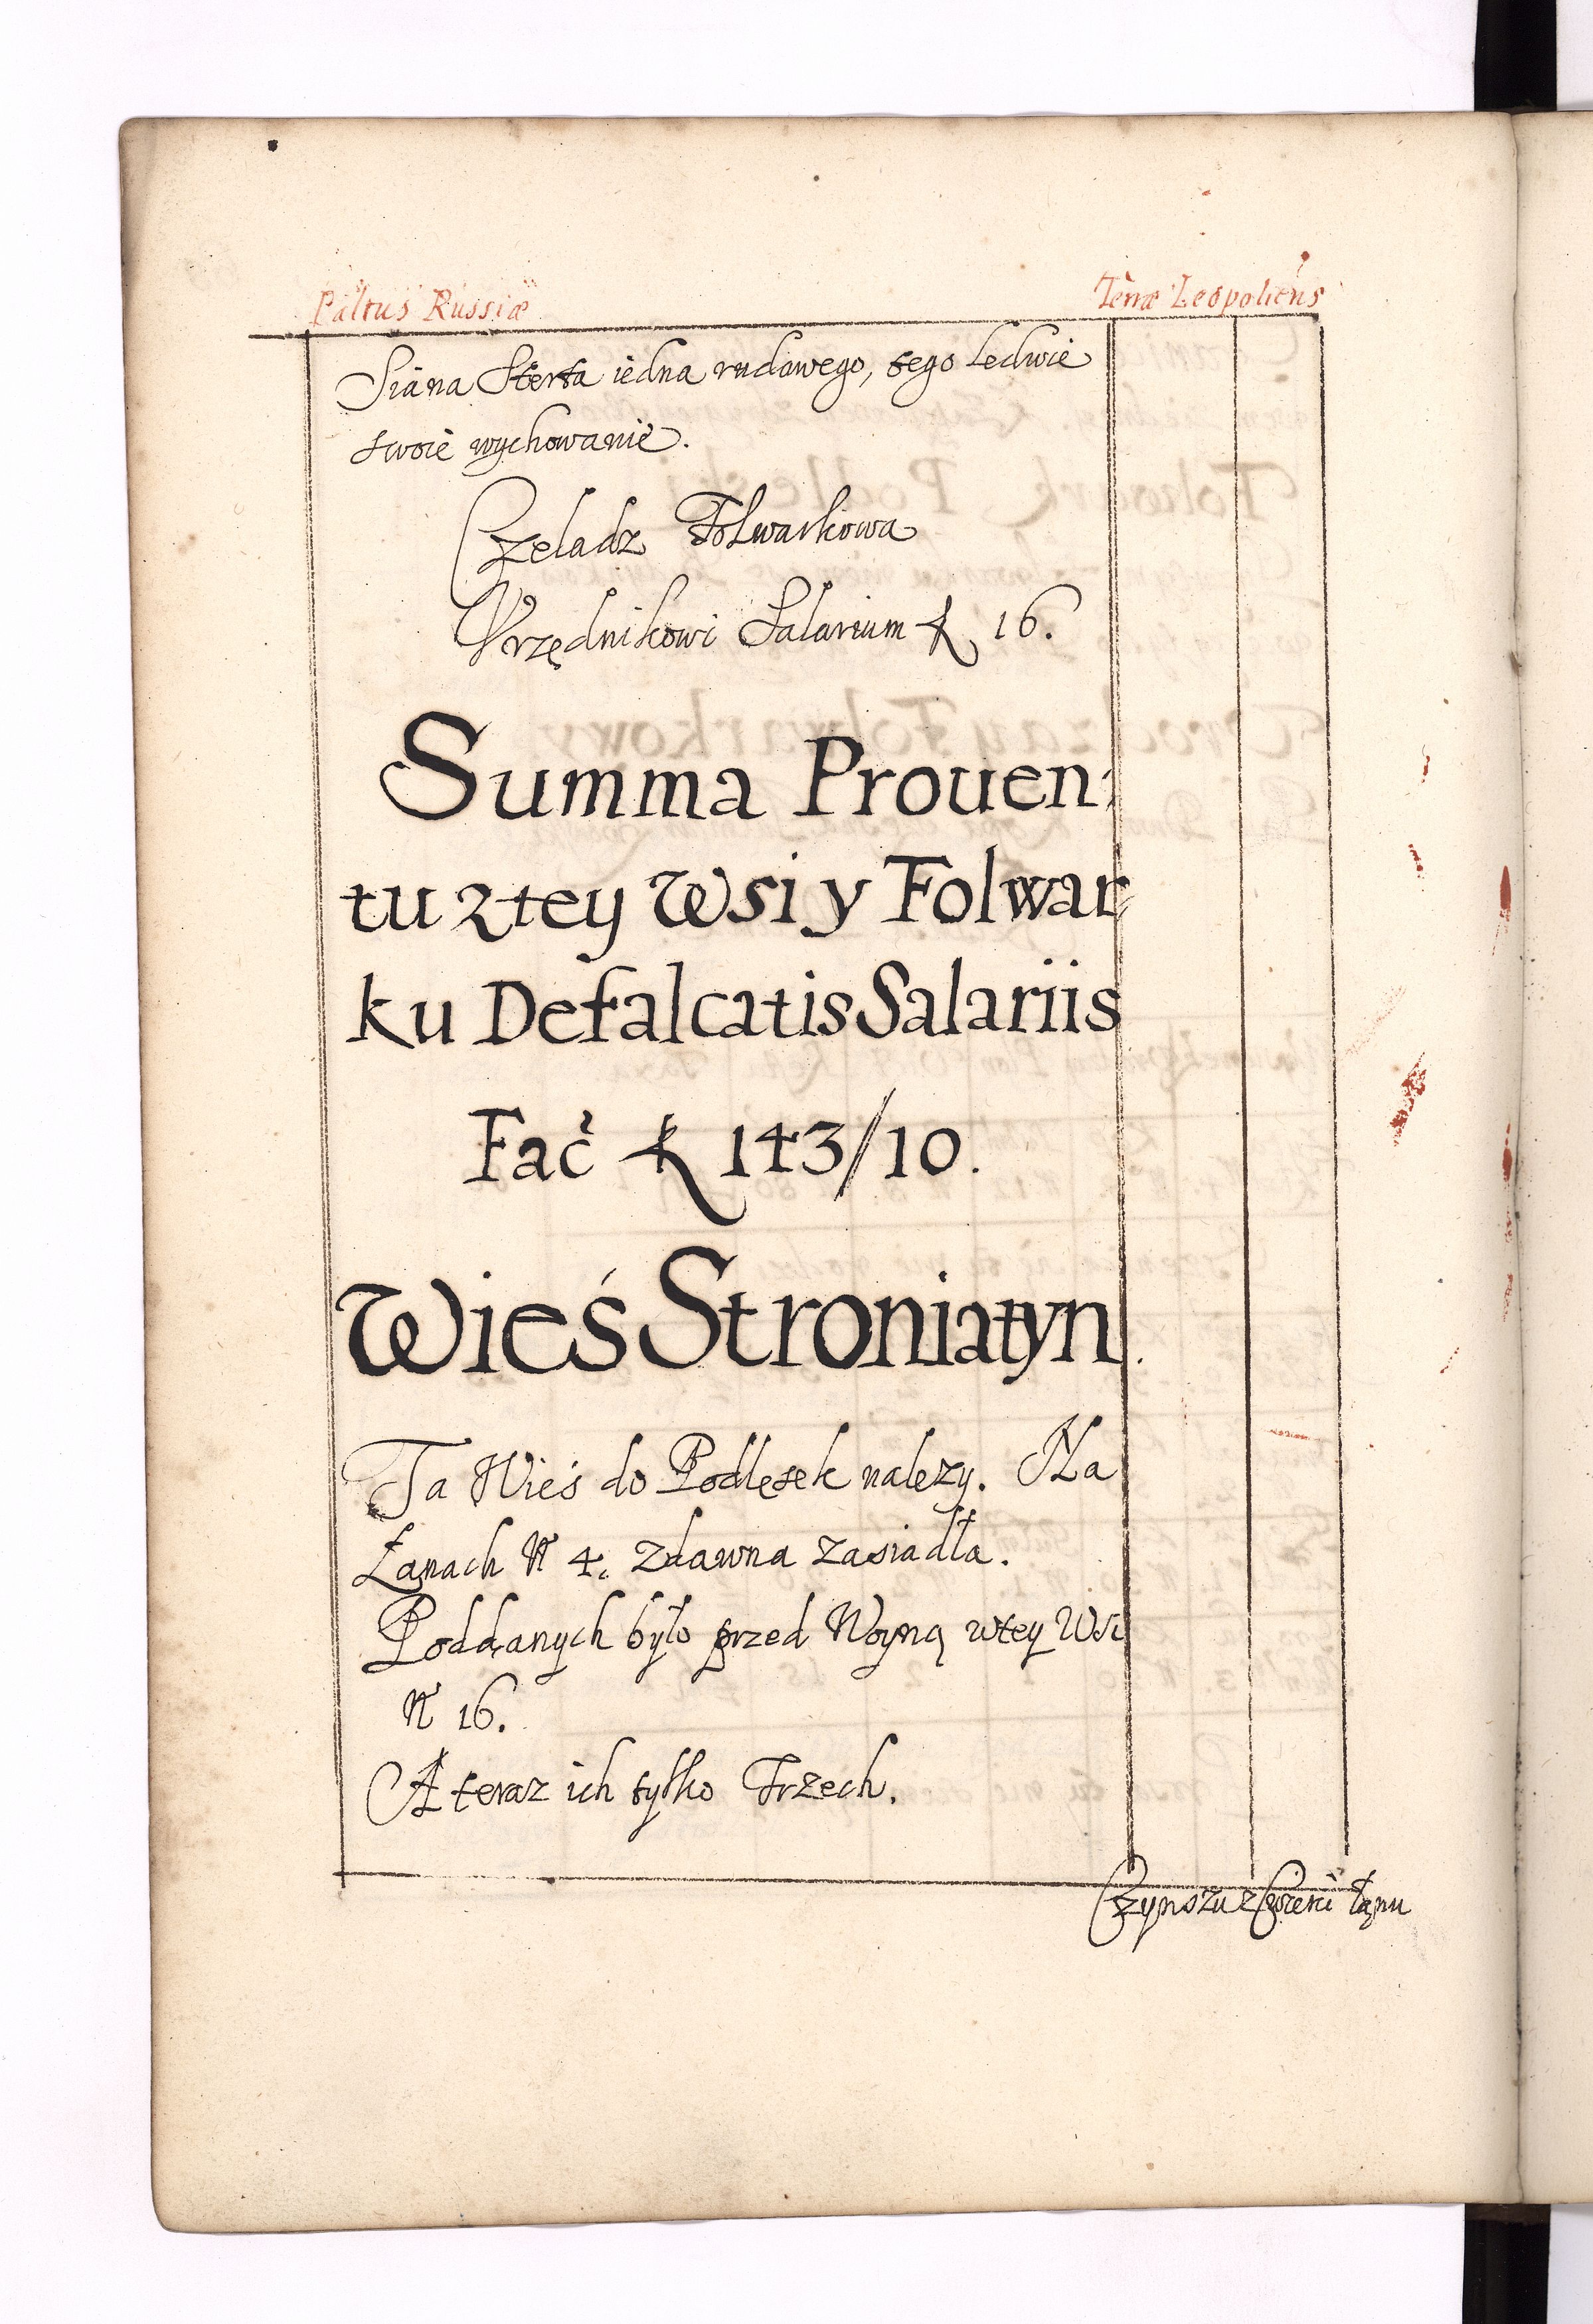 Paltus Russiæ
Terræ Leopoliens
Siana Sterta iedna rudowego, tego ledwie
swoie wychowanie.
Czeladz Folwarkowa
Vrzędnikowi Salarium f 16.
Summa Prouen:
tu z tey Wsi y Folwar:
ku Defalcatis Salariis
Fac f 143/10.
Wieś Stroniatyn
Ta Wieś do Podlesek nalezy. Na
Łanach N 4. zdawna zasiadła.
Poddanych było przed Woyną wtey Wsi
N 16.
A teraz ich tylko Trzech.
Czynszu z łanu